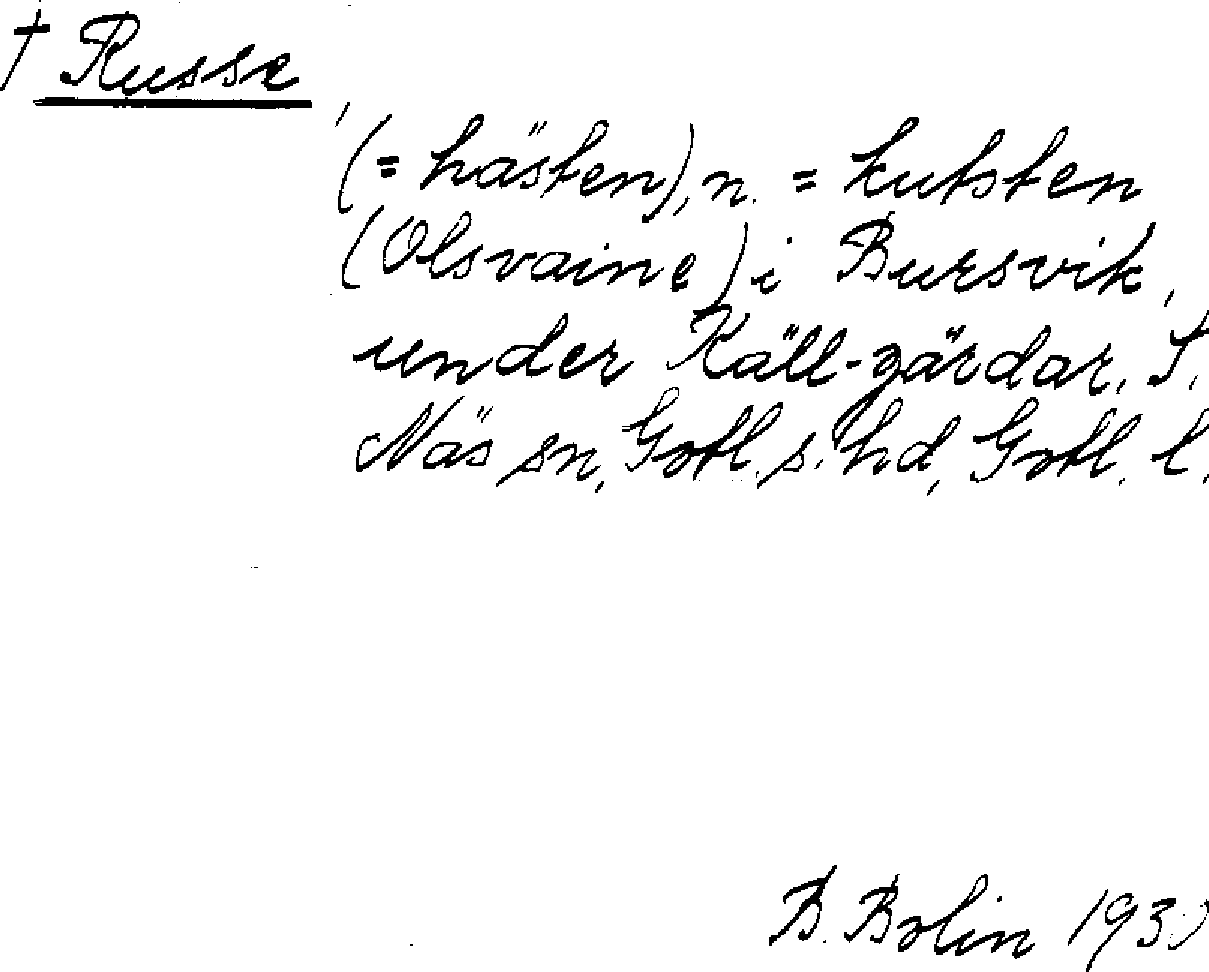 † Russe
(= hästen), n. = kutsten
(Olsvaine) i Bursvik,
under Käll-gärdar. I.
Näs sn, Gotl. s. hd, Gotl. l.
B. Bolin 1930